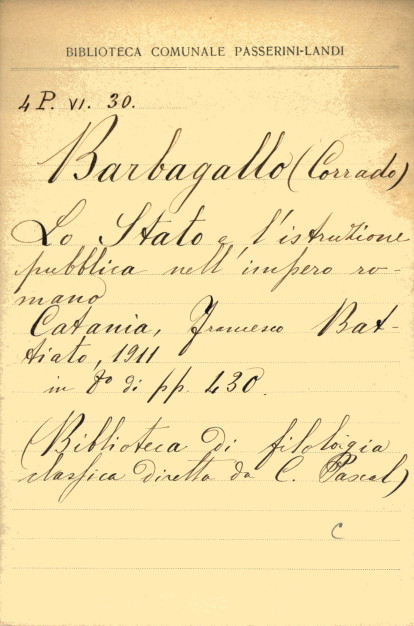 BIBLIOTECA COMUNALE PASSERINI-LANDI
4 P. VI. 30.
Barbagallo (Corrado)
Lo Stato e l'istruzione
pubblica nell'impero ro-
mano
Catania, Francesco Bat-
tiato, 1911
in 8º di pp. 430.
(Biblioteca di filologia
classica diretta da C. Pascal)
C